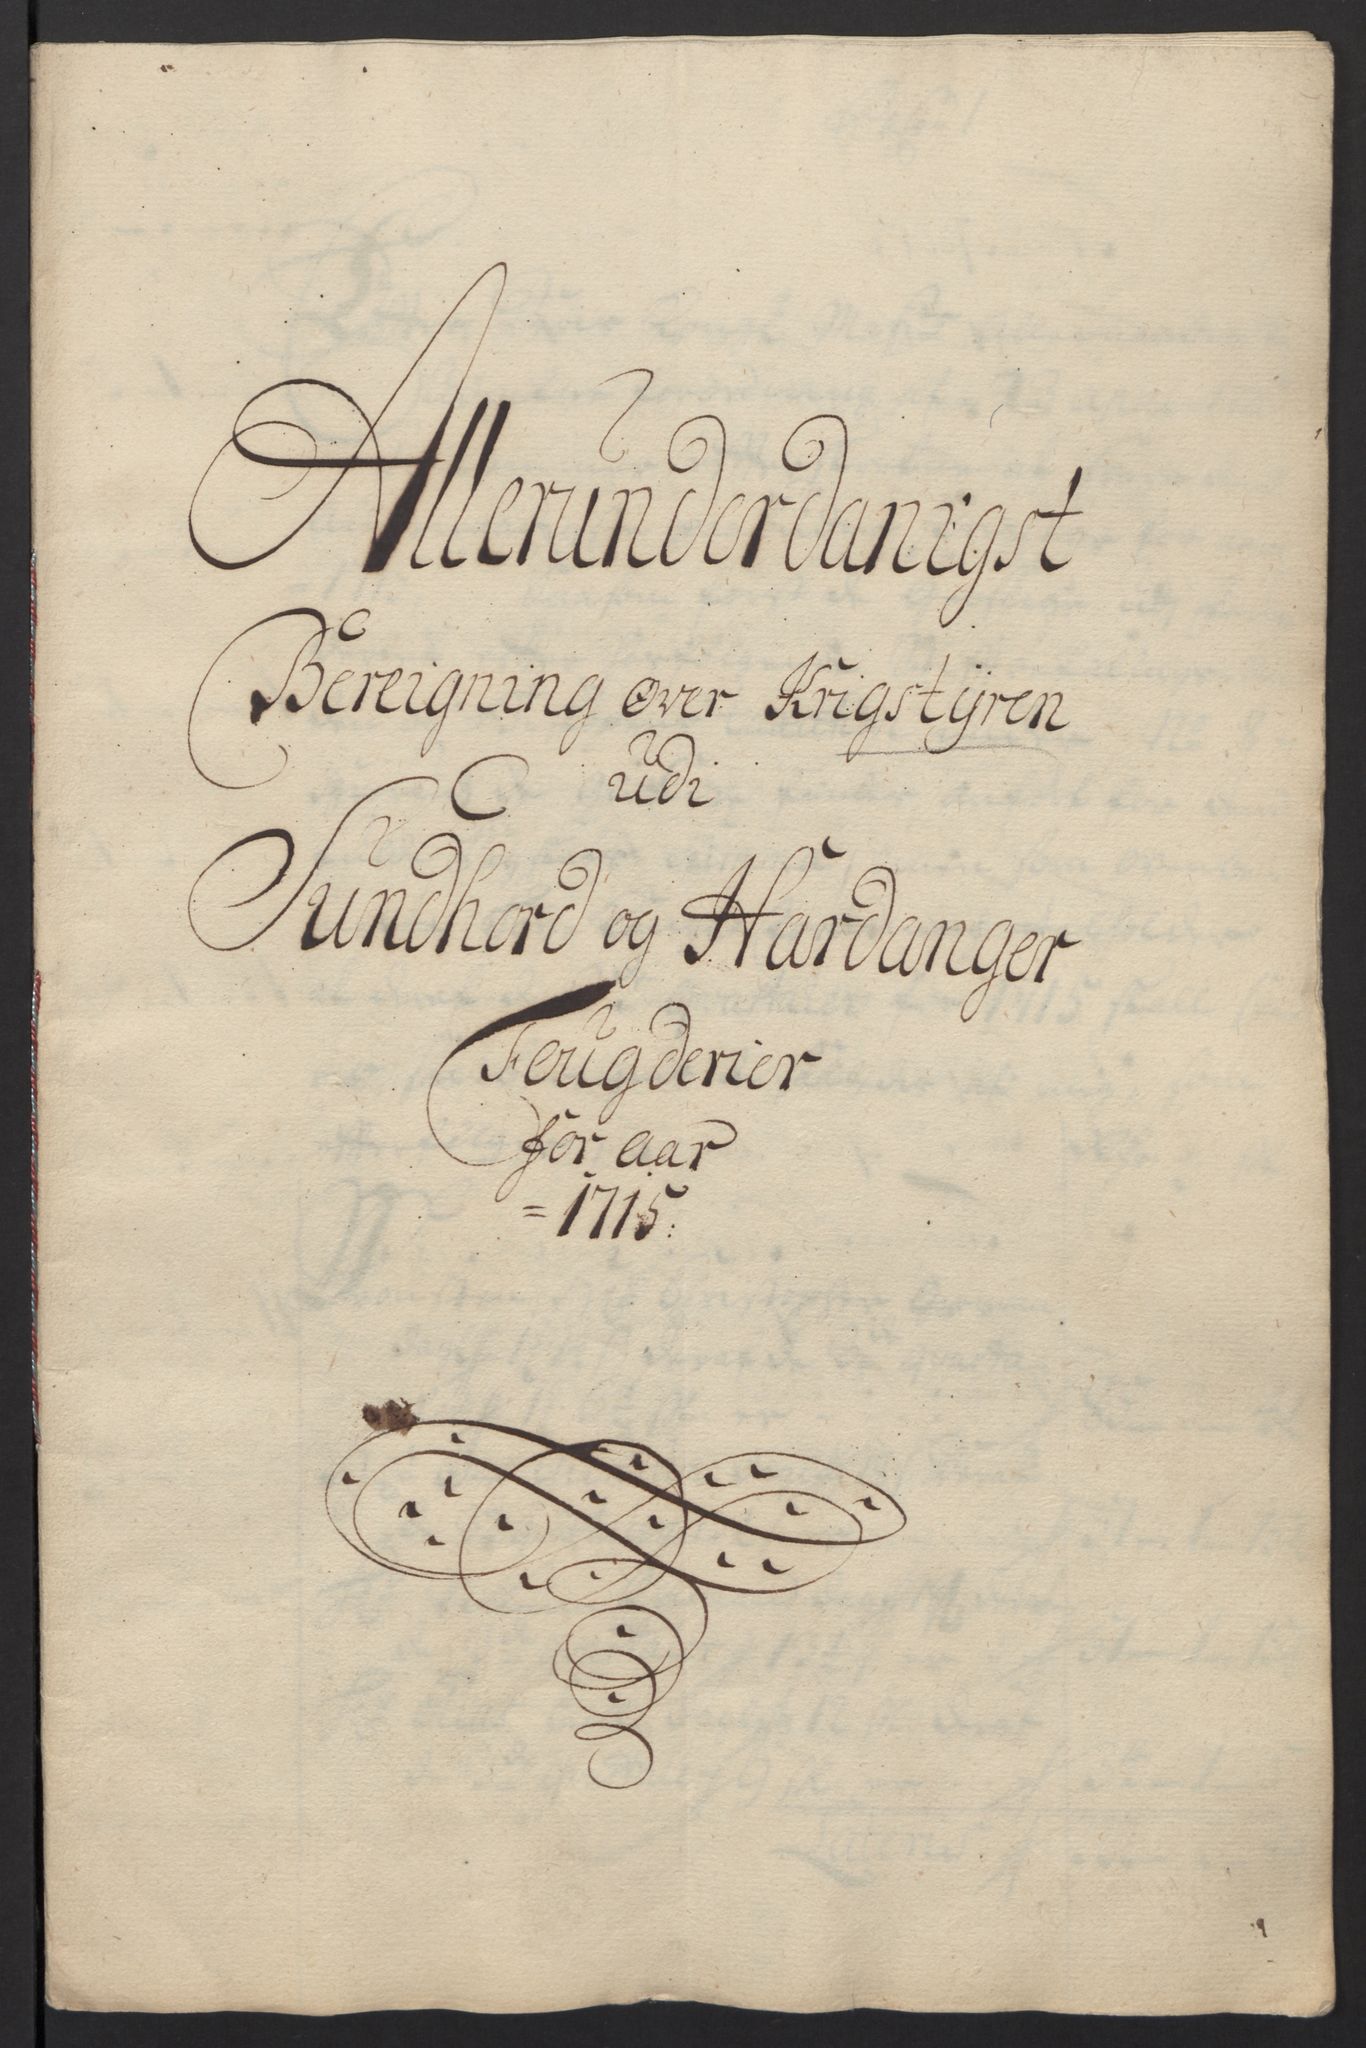 Allerunderdanigst
Bereigning over Krigstÿren
udi
Sundhord og Hardanger
Feugderier
for aar
=1715: